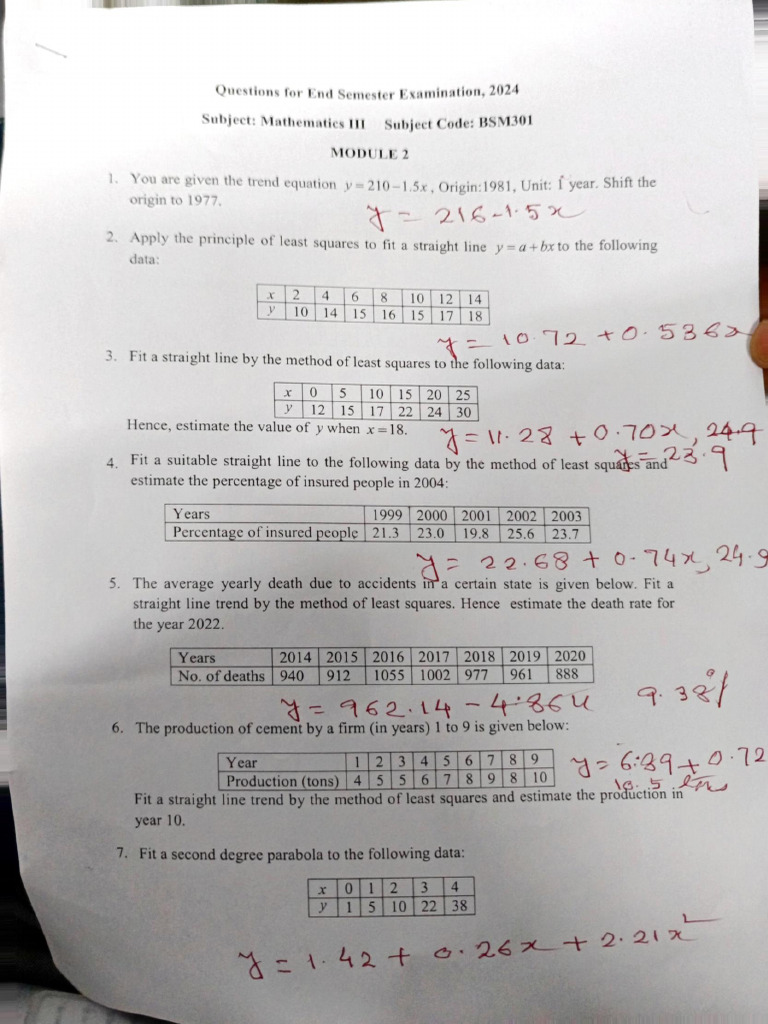 Questions for End Semester Examination, 2024
Subject: Mathematics III Subject Code: BSM301
MODULE 2
1. You are given the trend equation y = 210 – 1.5x, Origin:1981, Unit: 1 year. Shift the
origin to 1977.
y = 216-1.5x
2. Apply the principle of least squares to fit a straight line y = a + bx to the following
data:
x 2 4 6 8 10 12 14
y 10 14 15 16 15 17 18
y = 10.72 + 0.536x
3. Fit a straight line by the method of least squares to the following data:
x 0 5 10 15 20 25
y 12 15 17 22 24 30
Hence, estimate the value of y when x = 18.
y = 11.28 + 0.70x, 24.9
y = 23.9
4. Fit a suitable straight line to the following data by the method of least squares and
estimate the percentage of insured people in 2004:
Years 1999 2000 2001 2002 2003
Percentage of insured people 21.3 23.0 19.8 25.6 23.7
y = 22.68 + 0.74x, 24.9
5. The average yearly death due to accidents in a certain state is given below. Fit a
straight line trend by the method of least squares. Hence estimate the death rate for
the year 2022.
Years 2014 2015 2016 2017 2018 2019 2020
No. of deaths 940 912 1055 1002 977 961 888
y = 962.14 - 4.86u 9.38%
6. The production of cement by a firm (in years) 1 to 9 is given below:
Year 1 2 3 4 5 6 7 8 9
Production (tons) 4 5 5 6 7 8 9 8 10
y = 6.89 + 0.72
10.5
Fit a straight line trend by the method of least squares and estimate the production in
year 10.
7. Fit a second degree parabola to the following data:
x 0 1 2 3 4
y 1 5 10 22 38
y = 1.42 + 0.26x + 2.21x²